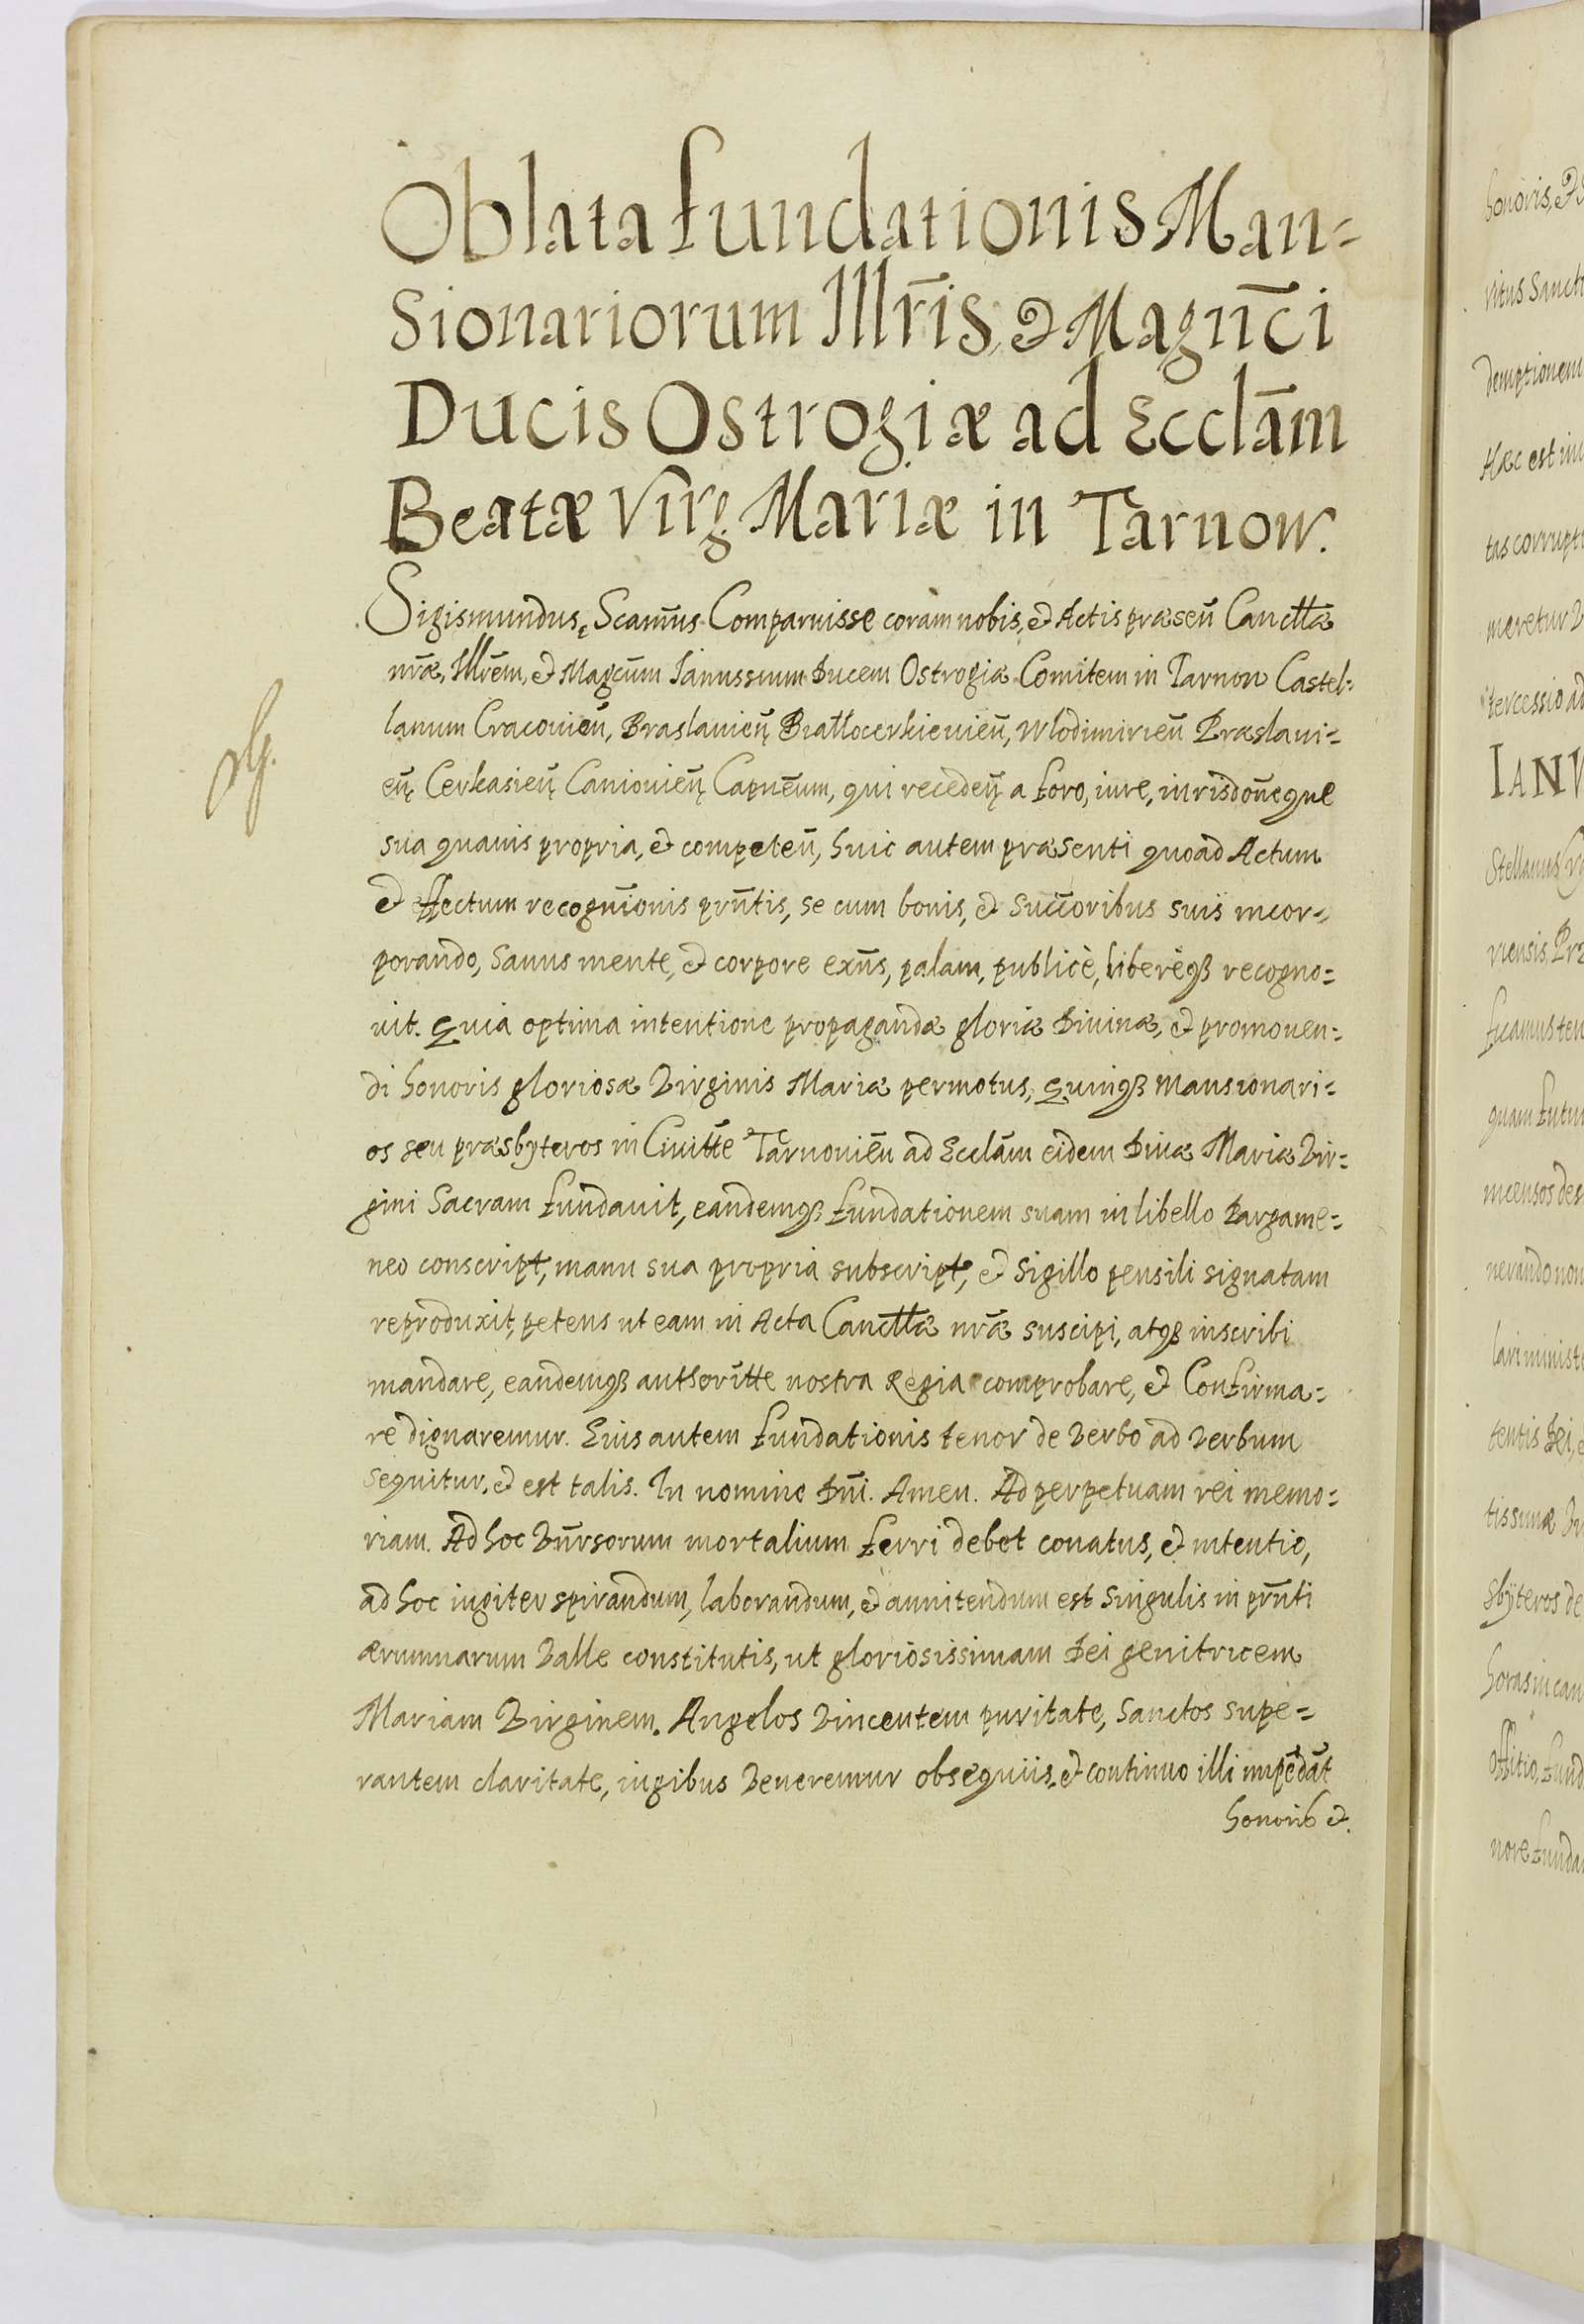 Oblata fundationis Man=
sionariorum Illr̃is, & Magnc̃i
Ducis Ostrogiæ ad Ecclãm
Beatæ Virg Mariæ in Tarnow.
Sigismundus, Scam̃us Comparuisse coram nobis, & Actis præseñ Canctt̃æ
nr̃æ, Illrẽm, & Magcũm Ianussium Ducem Ostrogiæ Comitem in Tarnow Castel=
lanum Cracouieñ, Braslauieñ Biattocerkieuieñ, Wlodimirieñ Præslaui=
eñ Cerkasieñ Caniouieñ Capnẽum, qui recedeñ a foro, iure, iurisdoñeque
sua quauis propria, & competeñ, huic autem præsenti quoad Actum
& effectum recogniõnis pr̃ntis, se cum bonis, & succ̃oribus suis incor=
porando, sanus mente, & corpore exñs, palam, publicè, liberèqȝ recogno=
uit. Quia optima intentione propagandæ gloriæ Diuinæ, & promouen=
di honoris gloriosæ Virginis Mariæ permotus, Quinqȝ Mansionari=
os seu præsbyteros in Ciuitt̃e Tarnouieñ ad Ecclãm eidem Diuæ Mariæ Vir=
gini Sacram fundauit, eandemqȝ fundationem suam in libello Pargame=
neo conscript, manu sua propria subscript, & Sigillo pensili signatam
reproduxit, petens ut eam in Acta Canctt̃æ nr̃æ suscipi, atqȝ inscribi
mandare, eandemqȝ authoritt̃e nostra Regia comprobare, & Confirma=
re dignaremur. Eius autem fundationis tenor de verbo ad verbum
sequitur, & est talis. In nomine Dñi. Amen. Ad perpetuam rei memo=
riam. Ad hoc Vñrsorum mortalium ferri debet conatus, & intentio,
ad hoc iugiter spirandum, laborandum, & annitendum est singulis in pr̃nti
ærumnarum Valle constitutis, ut gloriosissimam Dei genitricem
Mariam Virginem. Angelos Vincentem puritate, Sanctos supe=
rantem claritate, iugibus Veneremur obsequiis, & continuo illi impẽdãt
honorib &.
honoris, &
vitus Sanct
demptionem
Hæc est in
tas corrupt
mæretur V
tercessio ad
IANV
Stellanus
riensis, Præ
ficamus ten
quam futu
incensos des
nerando non
lari minist
tentis Dei,
tissimæ Vi
sbyteros de
horas in can
offitio, fund
nore funda